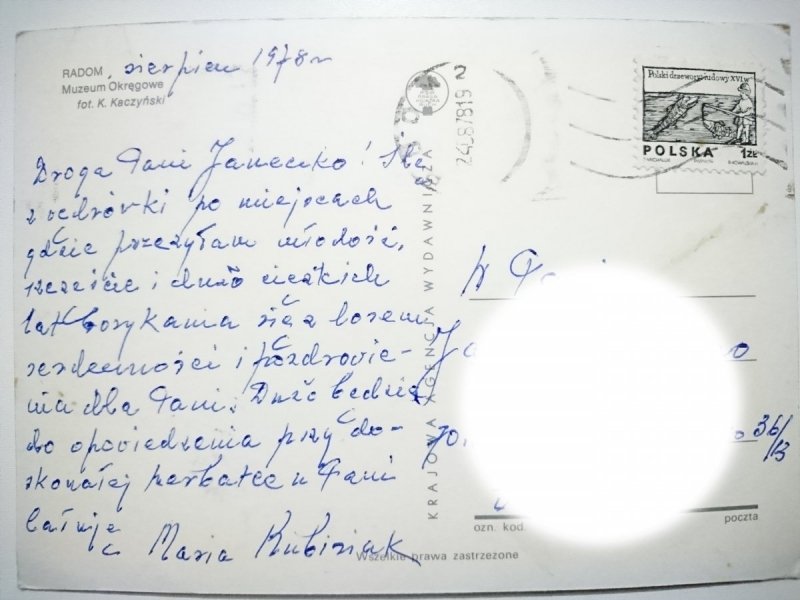 RADOM, sierpień 1978 r
Muzeum Okręgowe
fot. K. Kaczyński
24.08.78 19
2
Polski drzeworyt ludowy XVI w.
POLSKA 1 ZŁ
Droga Pani Janeczko! Ślę
z wędrówki po miejscach
gdzie przeżyłam młodość,
szczęście i dużo ciężkich
lat borykania się z losem
serdeczności i pozdrowie-
nia dla Pani. Dużo będzie
do opowiedzenia przy do-
skonałej herbatce u Pani
Całuję
Maria Kubisiak
KRAJOWA AGENCJA WYDAWNICZA
W
Ja
o
36/13
ozn. kod.
poczta
Wszelkie prawa zastrzeżone